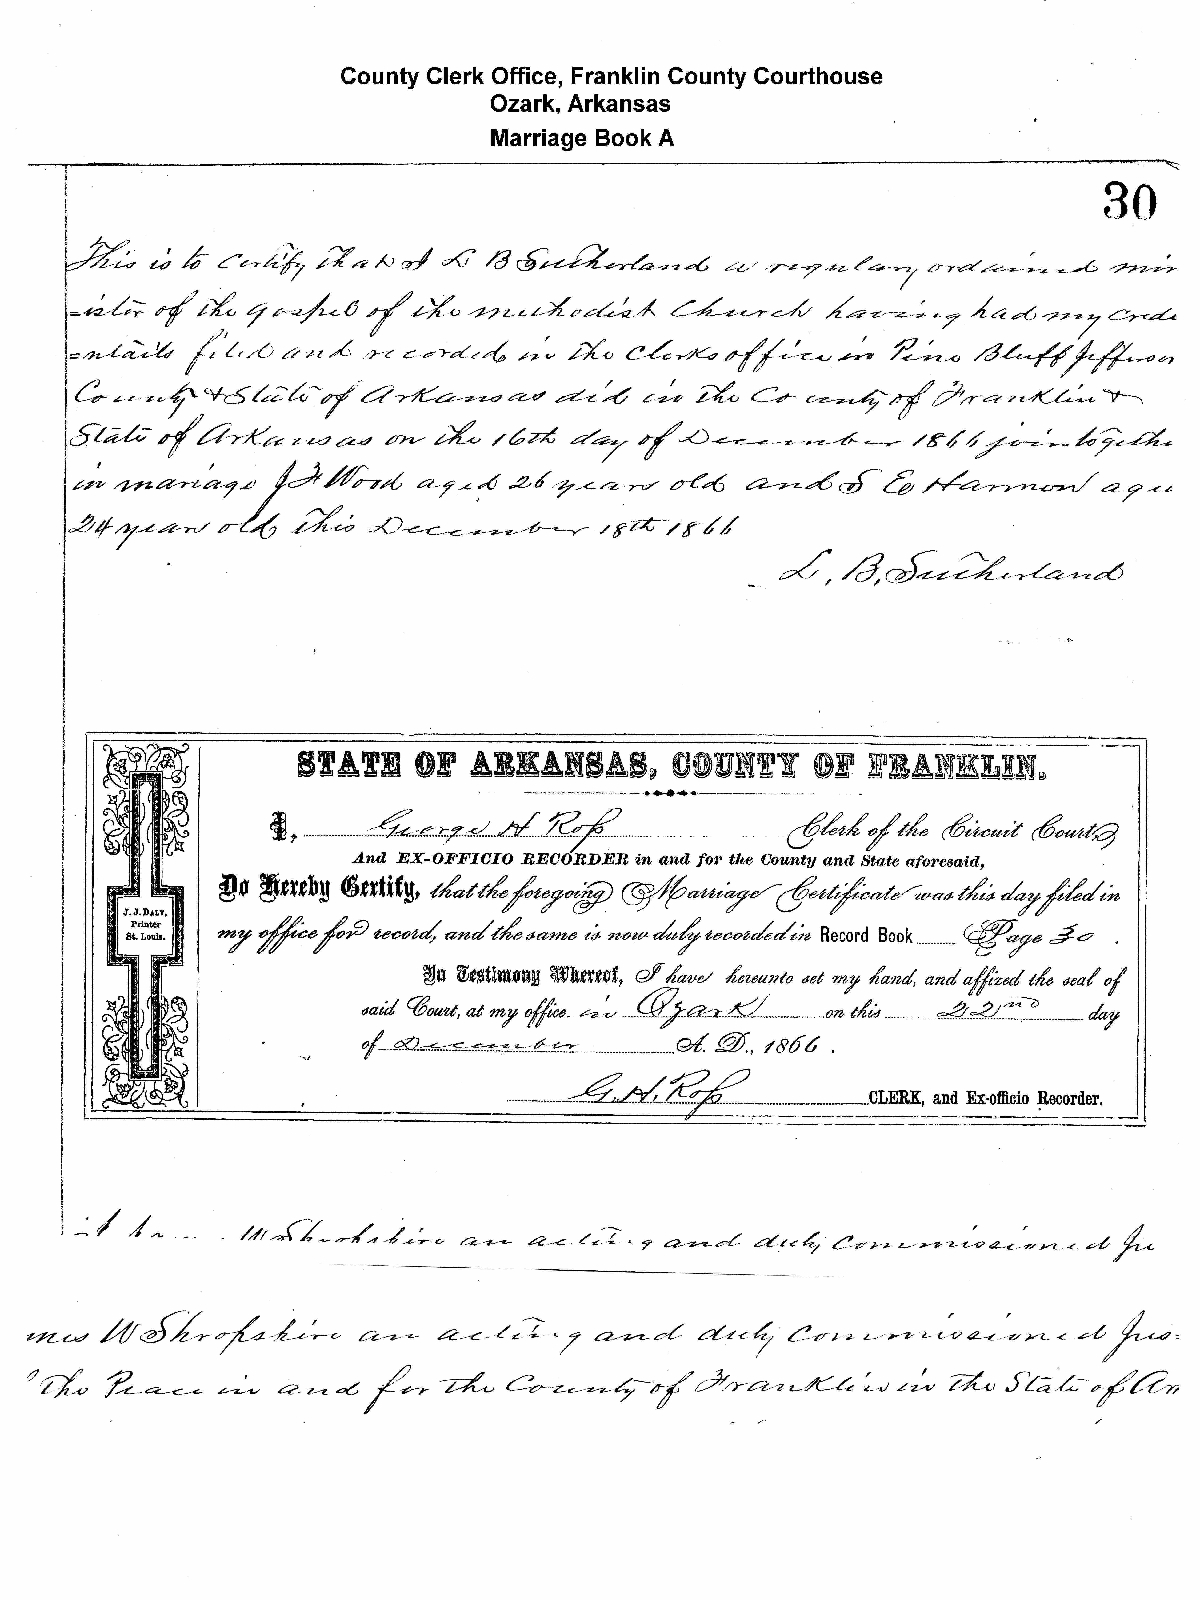 County Clerk Office, Franklin County Courthouse
Ozark, Arkansas
Marriage Book A
30
This is to certify that I L B Sutherland a regulary ordained min
=ister of the gospel of the methodist Church having had my crede
=ntails filed and recorded in the clerks office in Pine Bluff Jefferson
County & State of Arkansas did in the County of Franklin &
State of Arkansas on the 16th day of December 1866 join togethe
in mariage J F Wood aged 26 years old and S E Harmon aged
24 year old this December 18th 1866
L. B. Sutherland
STATE OF ARKANSAS, COUNTY OF FRANKLIN.
I, George H Ross Clerk of the Circuit Court
And EX-OFFICIO RECORDER in and for the County and State aforesaid,
Do Hereby Certify, that the foregoing Marriage Certificate was this day filed in
my office for record, and the same is now duly recorded in Record Book Page 30.
In Testimony Whereof, I have hereunto set my hand, and affixed the seal of
said Court, at my office in Ozark on this 22nd day
of December A. D., 1866.
G. H. Ross CLERK, and Ex-officio Recorder.
J. J. DALY,
Printer
St. Louis.
W Shropshire an acting and duly commissioned Ju
mes W Shropshire an acting and duly commissioned Jus=
The Peace in and for the County of Franklin in the State of Ar